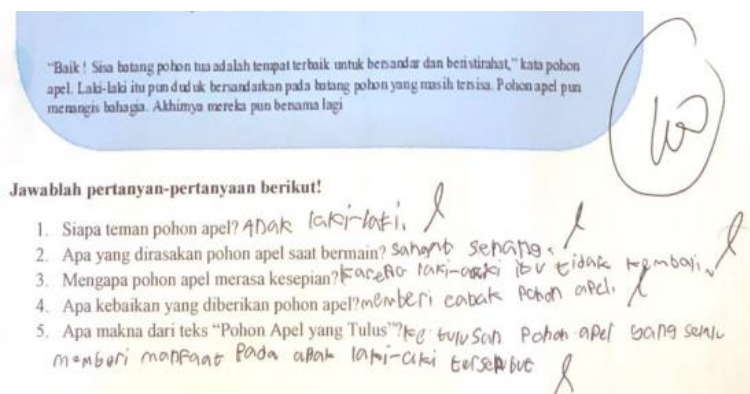 “Baik ! Sisa batang pohon tua adalah tempat terbaik untuk bersandar dan beristirahat,” kata pohon
apel. Laki-laki itu pun duduk bersandarkan pada batang pohon yang masih tersisa. Pohon apel pun
menangis bahagia. Akhirnya mereka pun bersama lagi
100
Jawablah pertanyan-pertanyaan berikut!
1. Siapa teman pohon apel? Anak laki-laki.
2. Apa yang dirasakan pohon apel saat bermain? sangat senang.
3. Mengapa pohon apel merasa kesepian? karena laki-laki itu tidak kembali.
4. Apa kebaikan yang diberikan pohon apel? memberi pohon apel.
5. Apa makna dari teks “Pohon Apel yang Tulus”? ke tulusan pohon apel yang selalu
memberi manfaat pada anak laki-aki tersebut